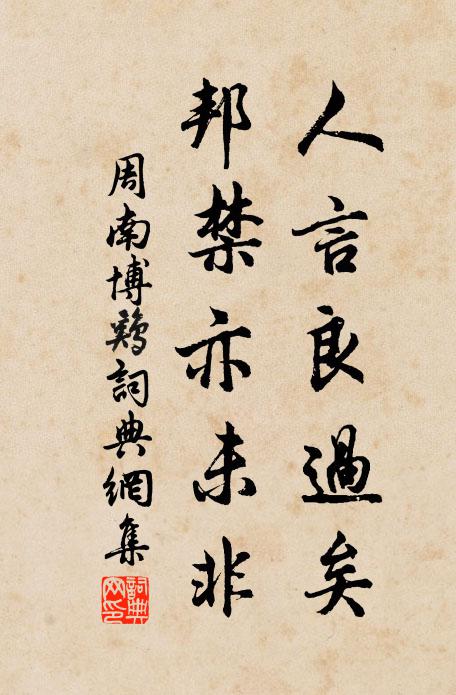 人言良過矣
邦禁亦未非
周南博鷄詞典網集
詞典網印